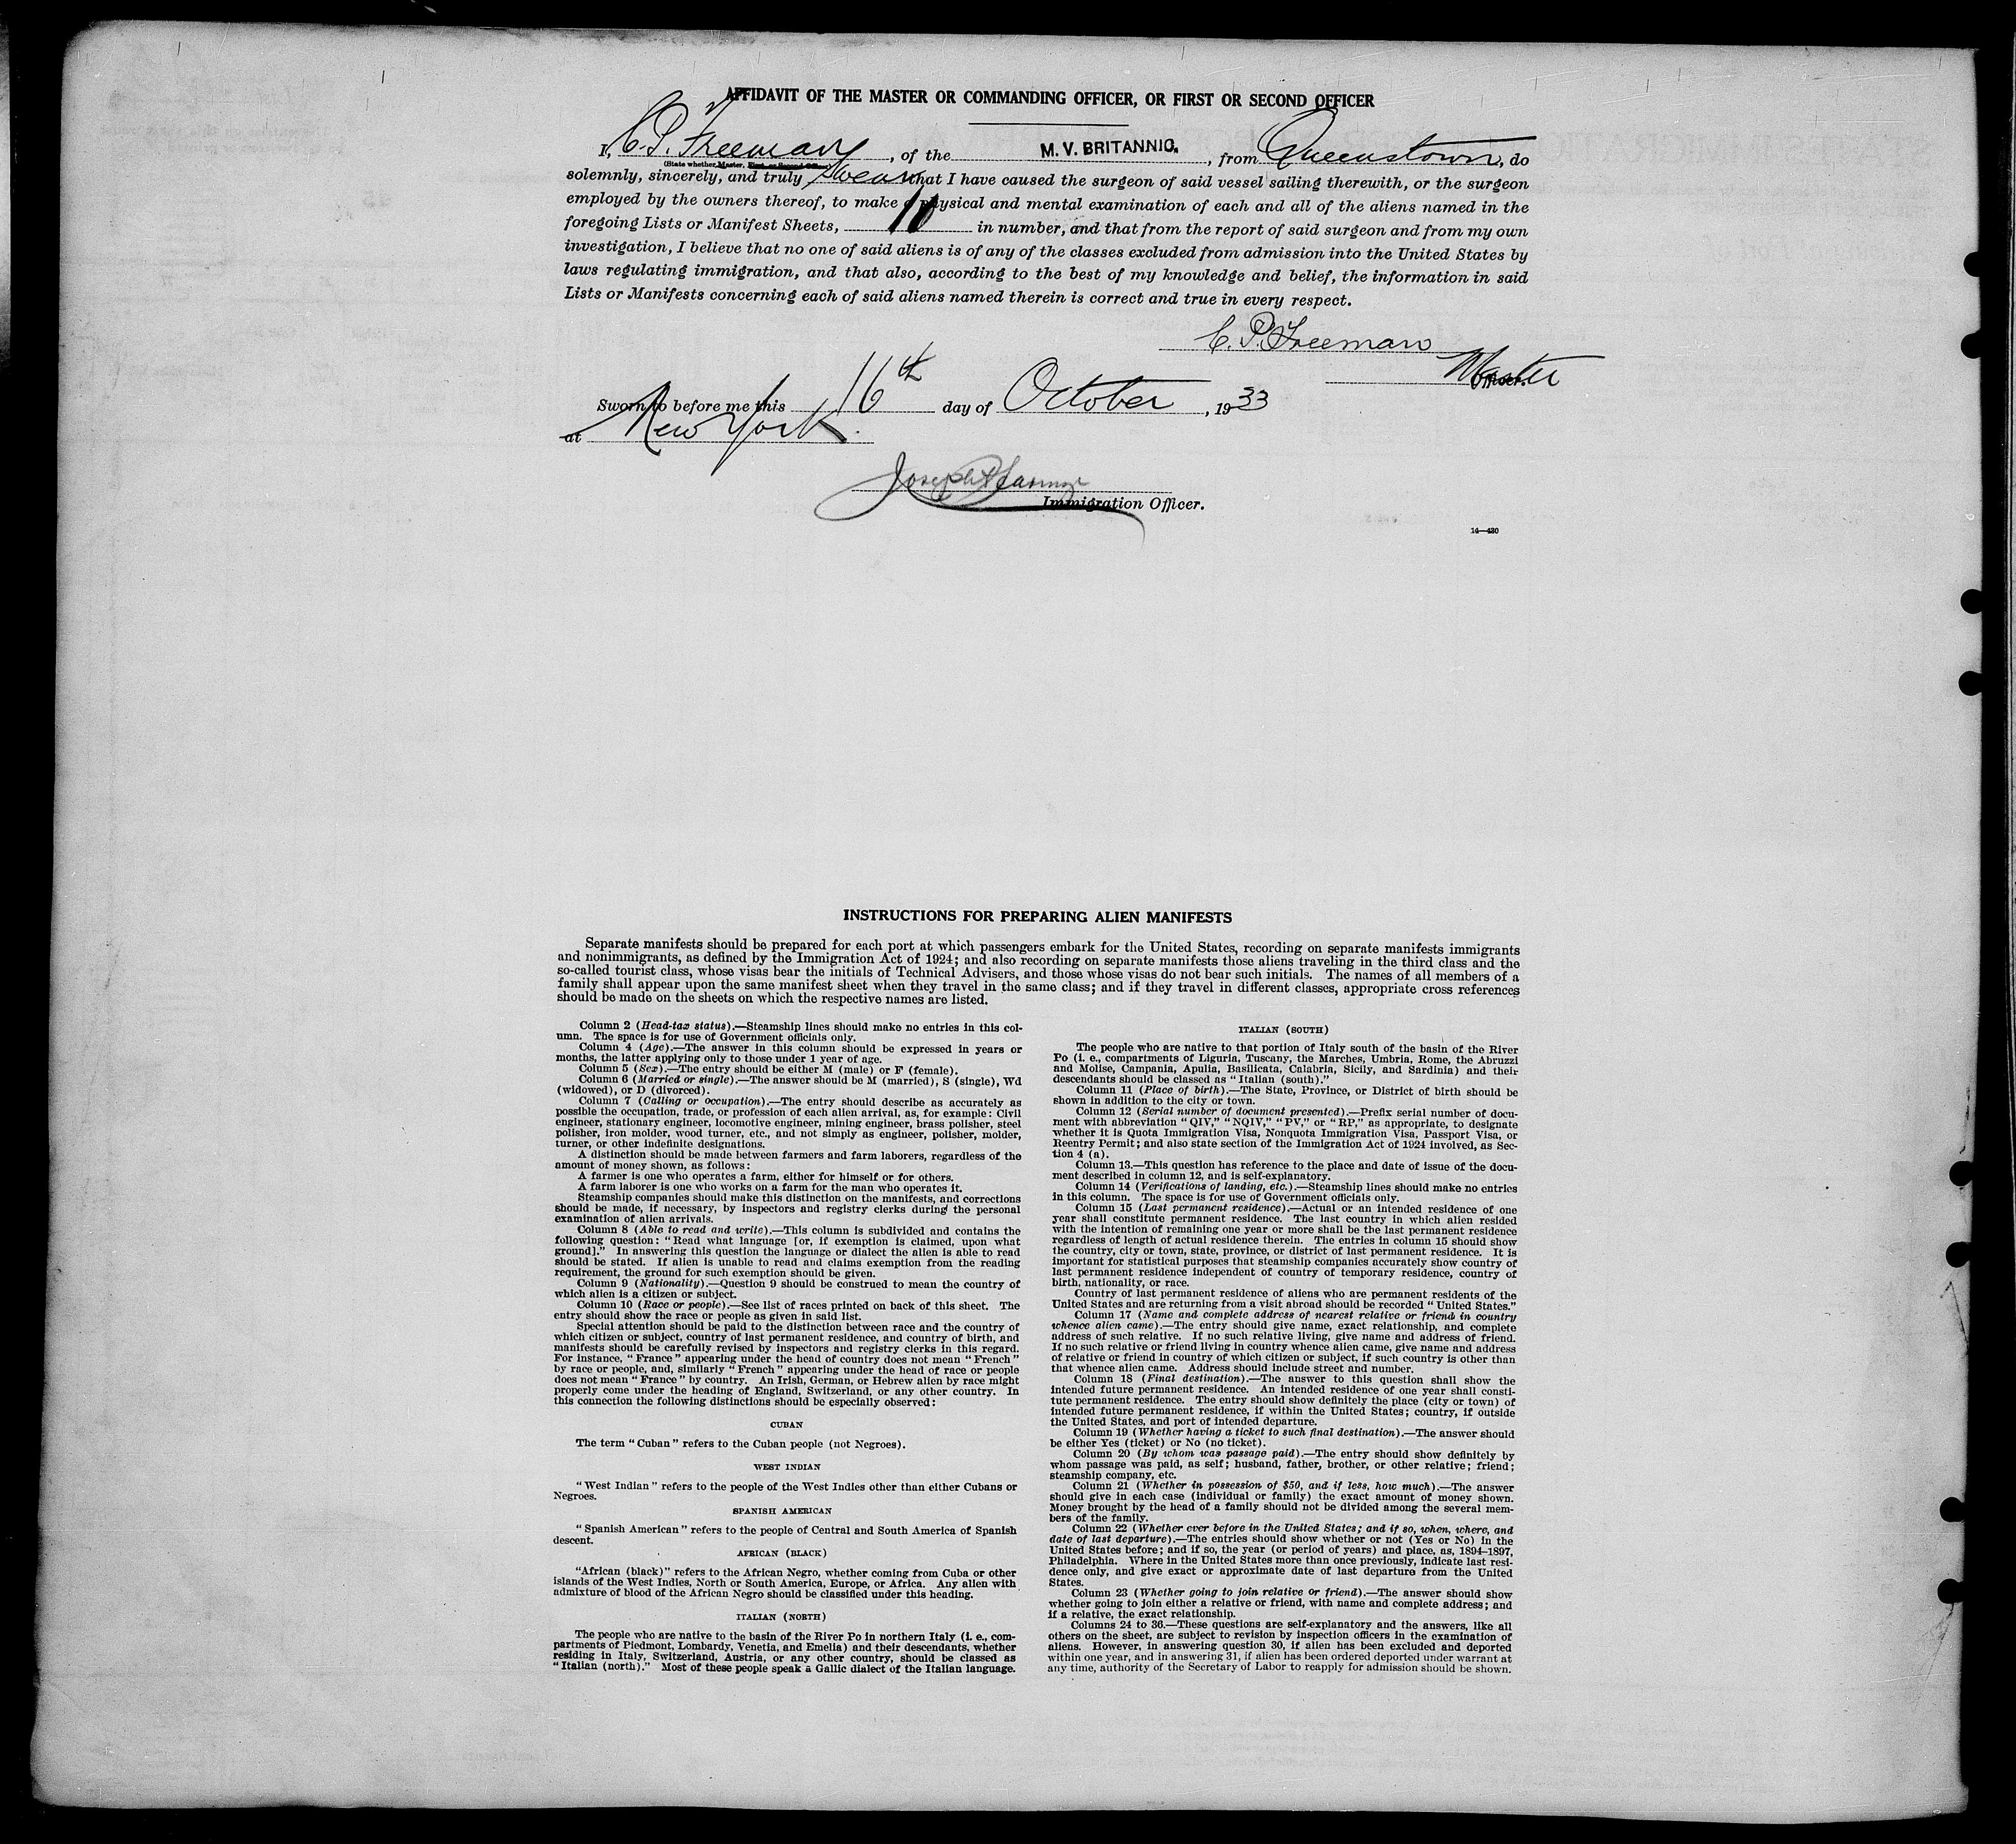 AFFIDAVIT OF THE MASTER OR COMMANDING OFFICER, OR FIRST OR SECOND OFFICER
I, C. P. Freeman, of the M. V. BRITANNIC., from Queenstown, do
(State whether Master, First, or Second Officer)
solemnly, sincerely, and truly swear that I have caused the surgeon of said vessel sailing therewith, or the surgeon
employed by the owners thereof, to make a physical and mental examination of each and all of the aliens named in the
foregoing Lists or Manifest Sheets, in number, and that from the report of said surgeon and from my own
investigation, I believe that no one of said aliens is of any of the classes excluded from admission into the United States by
laws regulating immigration, and that also, according to the best of my knowledge and belief, the information in said
Lists or Manifests concerning each of said aliens named therein is correct and true in every respect.
C. P. Freeman
Master
Officer.
Sworn to before me this 16th day of October, 1933
at New York.
Joseph
Immigration Officer.
14—430
INSTRUCTIONS FOR PREPARING ALIEN MANIFESTS
Separate manifests should be prepared for each port at which passengers embark for the United States, recording on separate manifests immigrants
and nonimmigrants, as defined by the Immigration Act of 1924; and also recording on separate manifests those aliens traveling in the third class and the
so-called tourist class, whose visas bear the initials of Technical Advisers, and those whose visas do not bear such initials. The names of all members of a
family shall appear upon the same manifest sheet when they travel in the same class; and if they travel in different classes, appropriate cross references
should be made on the sheets on which the respective names are listed.
Column 2 (Head-tax status).—Steamship lines should make no entries in this col-
umn. The space is for use of Government officials only.
Column 4 (Age).—The answer in this column should be expressed in years or
months, the latter applying only to those under 1 year of age.
Column 5 (Sex).—The entry should be either M (male) or F (female).
Column 6 (Married or single).—The answer should be M (married), S (single), Wd
(widowed), or D (divorced).
Column 7 (Calling or occupation).—The entry should describe as accurately as
possible the occupation, trade, or profession of each alien arrival, as, for example: Civil
engineer, stationary engineer, locomotive engineer, mining engineer, brass polisher, steel
polisher, iron molder, wood turner, etc., and not simply as engineer, polisher, molder,
turner, or other indefinite designations.
A distinction should be made between farmers and farm laborers, regardless of the
amount of money shown, as follows:
A farmer is one who operates a farm, either for himself or for others.
A farm laborer is one who works on a farm for the man who operates it.
Steamship companies should make this distinction on the manifests, and corrections
should be made, if necessary, by inspectors and registry clerks during the personal
examination of alien arrivals.
Column 8 (Able to read and write).—This column is subdivided and contains the
following question: "Read what language [or, if exemption is claimed, upon what
ground]." In answering this question the language or dialect the alien is able to read
should be stated. If alien is unable to read and claims exemption from the reading
requirement, the ground for such exemption should be given.
Column 9 (Nationality).—Question 9 should be construed to mean the country of
which alien is a citizen or subject.
Column 10 (Race or people).—See list of races printed on back of this sheet. The
entry should show the race or people as given in said list.
Special attention should be paid to the distinction between race and the country of
which citizen or subject, country of last permanent residence, and country of birth, and
manifests should be carefully revised by inspectors and registry clerks in this regard.
For instance, "France" appearing under the head of country does not mean "French"
by race or people, and, similarly "French" appearing under the head of race or people
does not mean "France" by country. An Irish, German, or Hebrew alien by race might
properly come under the heading of England, Switzerland, or any other country. In
this connection the following distinctions should be especially observed:
CUBAN
The term "Cuban" refers to the Cuban people (not Negroes).
WEST INDIAN
"West Indian" refers to the people of the West Indies other than either Cubans or
Negroes.
SPANISH AMERICAN
"Spanish American" refers to the people of Central and South America of Spanish
descent.
AFRICAN (BLACK)
"African (black)" refers to the African Negro, whether coming from Cuba or other
islands of the West Indies, North or South America, Europe, or Africa. Any alien with
admixture of blood of the African Negro should be classified under this heading.
ITALIAN (NORTH)
The people who are native to the basin of the River Po in northern Italy (i. e., com-
partments of Piedmont, Lombardy, Venetia, and Emelia) and their descendants, whether
residing in Italy, Switzerland, Austria, or any other country, should be classed as
"Italian (north)." Most of these people speak a Gallic dialect of the Italian language.
ITALIAN (SOUTH)
The people who are native to that portion of Italy south of the basin of the River
Po (i. e., compartments of Liguria, Tuscany, the Marches, Umbria, Rome, the Abruzzi
and Molise, Campania, Apulia, Basilicata, Calabria, Sicily, and Sardinia) and their
descendants should be classed as "Italian (south)."
Column 11 (Place of birth).—The State, Province, or District of birth should be
shown in addition to the city or town.
Column 12 (Serial number of document presented).—Prefix serial number of docu-
ment with abbreviation "QIV," "NQIV," "PV," or "RP," as appropriate, to designate
whether it is Quota Immigration Visa, Nonquota Immigration Visa, Passport Visa, or
Reentry Permit; and also state section of the Immigration Act of 1924 involved, as Sec-
tion 4 (a).
Column 13.—This question has reference to the place and date of issue of the docu-
ment described in column 12, and is self-explanatory.
Column 14 (Verifications of landing, etc.).—Steamship lines should make no entries
in this column. The space is for use of Government officials only.
Column 15 (Last permanent residence).—Actual or an intended residence of one
year shall constitute permanent residence. The last country in which alien resided
with the intention of remaining one year or more shall be the last permanent residence
regardless of length of actual residence therein. The entries in column 15 should show
the country, city or town, state, province, or district of last permanent residence. It is
important for statistical purposes that steamship companies accurately show country of
last permanent residence independent of country of temporary residence, country of
birth, nationality, or race.
Country of last permanent residence of aliens who are permanent residents of the
United States and are returning from a visit abroad should be recorded "United States."
Column 17 (Name and complete address of nearest relative or friend in country
whence alien came).—The entry should give name, exact relationship, and complete
address of such relative. If no such relative living, give name and address of friend.
If no such relative or friend living in country whence alien came, give name and address
of relative or friend in country of which citizen or subject, if such country is other than
that whence alien came. Address should include street and number.
Column 18 (Final destination).—The answer to this question shall show the
intended future permanent residence. An intended residence of one year shall consti-
tute permanent residence. The entry should show definitely the place (city or town) of
intended future permanent residence, if within the United States; country, if outside
the United States, and port of intended departure.
Column 19 (Whether having a ticket to such final destination).—The answer should
be either Yes (ticket) or No (no ticket).
Column 20 (By whom was passage paid).—The entry should show definitely by
whom passage was paid, as self; husband, father, brother, or other relative; friend;
steamship company, etc.
Column 21 (Whether in possession of $50, and if less, how much).—The answer
should give in each case (individual or family) the exact amount of money shown.
Money brought by the head of a family should not be divided among the several mem-
bers of the family.
Column 22 (Whether ever before in the United States; and if so, when, where, and
date of last departure).—The entries should show whether or not (Yes or No) in the
United States before; and if so, the year (or period of years) and place, as, 1894–1897,
Philadelphia. Where in the United States more than once previously, indicate last resi-
dence only, and give exact or approximate date of last departure from the United
States.
Column 23 (Whether going to join relative or friend).—The answer should show
whether going to join either a relative or friend, with name and complete address; and
if a relative, the exact relationship.
Columns 24 to 36.—These questions are self-explanatory and the answers, like all
others on the sheet, are subject to revision by inspection officers in the examination of
aliens. However, in answering question 30, if alien has been excluded and deported
within one year, and in answering 31, if alien has been ordered deported under warrant at
any time, authority of the Secretary of Labor to reapply for admission should be shown.